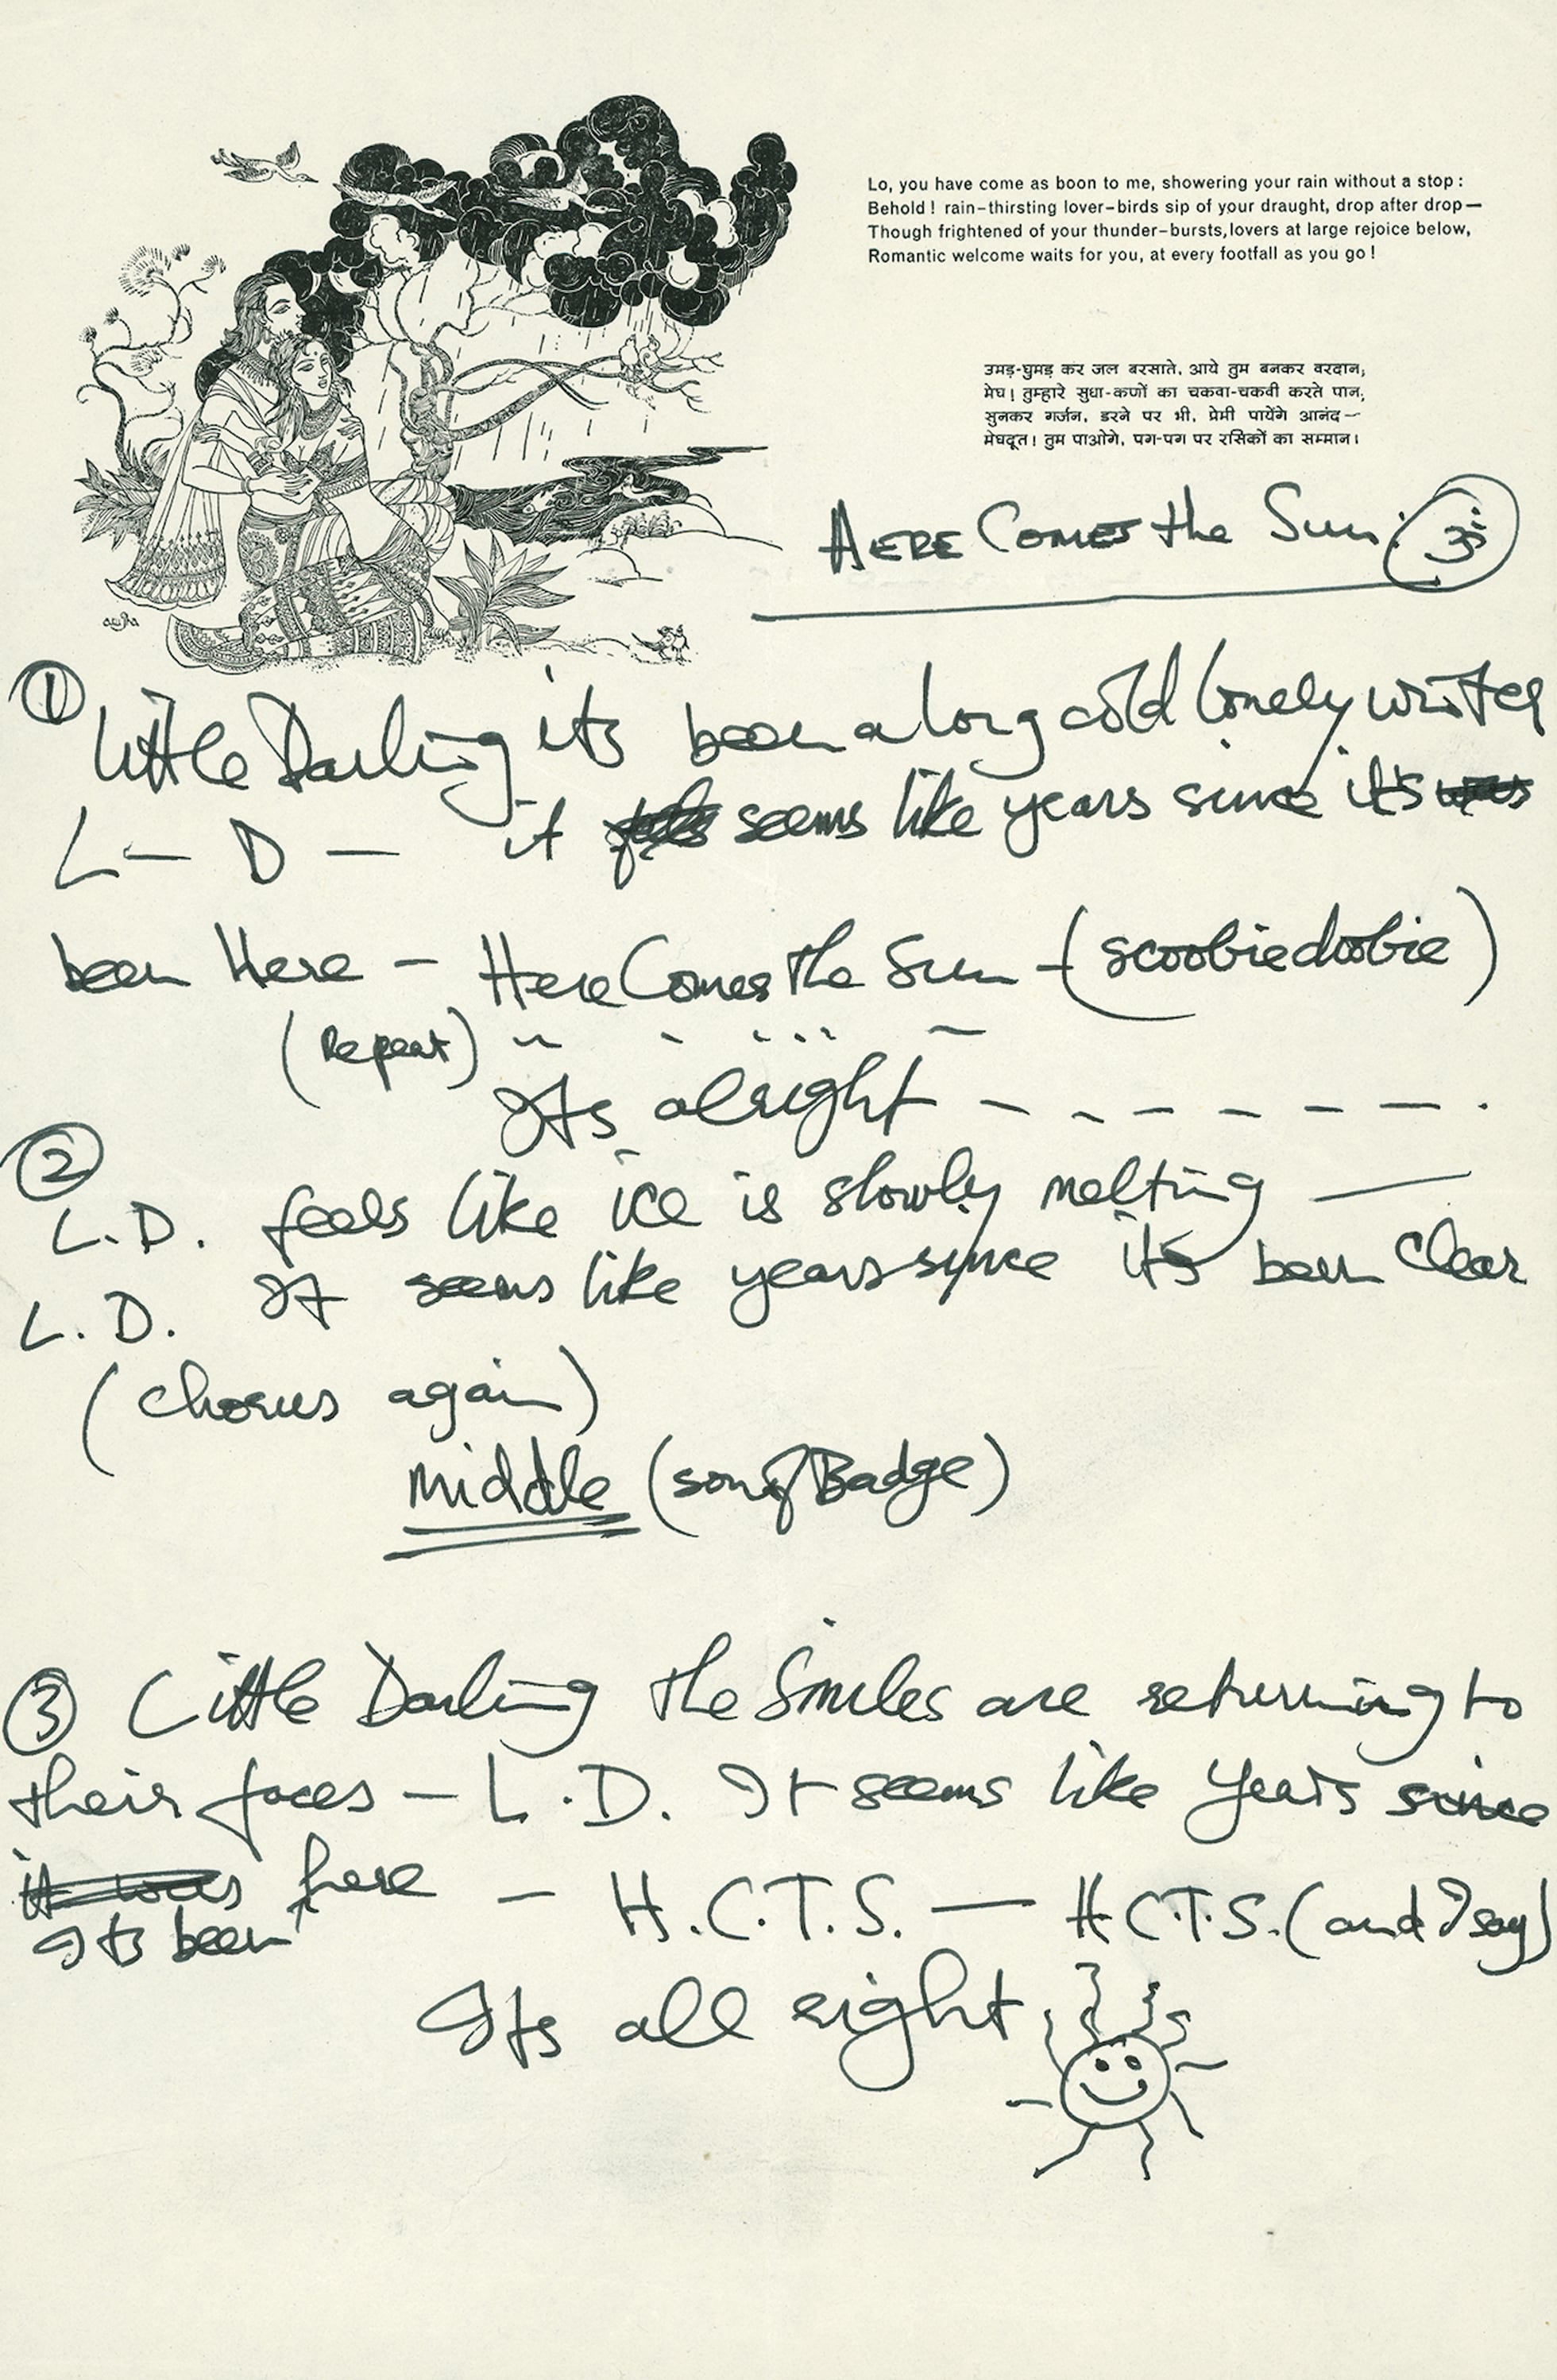 Lo, you have come as boon to me, showering your rain without a stop :
Behold ! rain-thirsting lover-birds sip of your draught, drop after drop—
Though frightened of your thunder-bursts, lovers at large rejoice below,
Romantic welcome waits for you, at every footfall as you go !
उमड़-घुमड़ कर जल बरसाते, आये तुम बनकर वरदान;
मेघ! तुम्हारे सुधा-कणों का चकवा-चकवी करते पान;
सुनकर गर्जन, डरने पर भी, प्रेमी पायेंगे आनंद—
मेघदूत! तुम पाओगे, पग-पग पर रसिकों का सम्मान।
HERE COMES the Sun. ॐ
① Little Darling its been a long cold lonely winter
L— D — it feels seems like years since it's was
been Here — Here Comes the Sun — (scoobiedoobie)
(Repeat) " " " " "
Its alright — — — — — — — .
②
L.D. feels like ice is slowly melting —
L.D. It seems like years since it's been clear
(Chorus again)
middle (son of Badge)
③ Little Darling the Smiles are returning to
their faces — L.D. It seems like years since
it was here — H.C.T.S. — H.C.T.S. (and I say)
Its been
Its all right